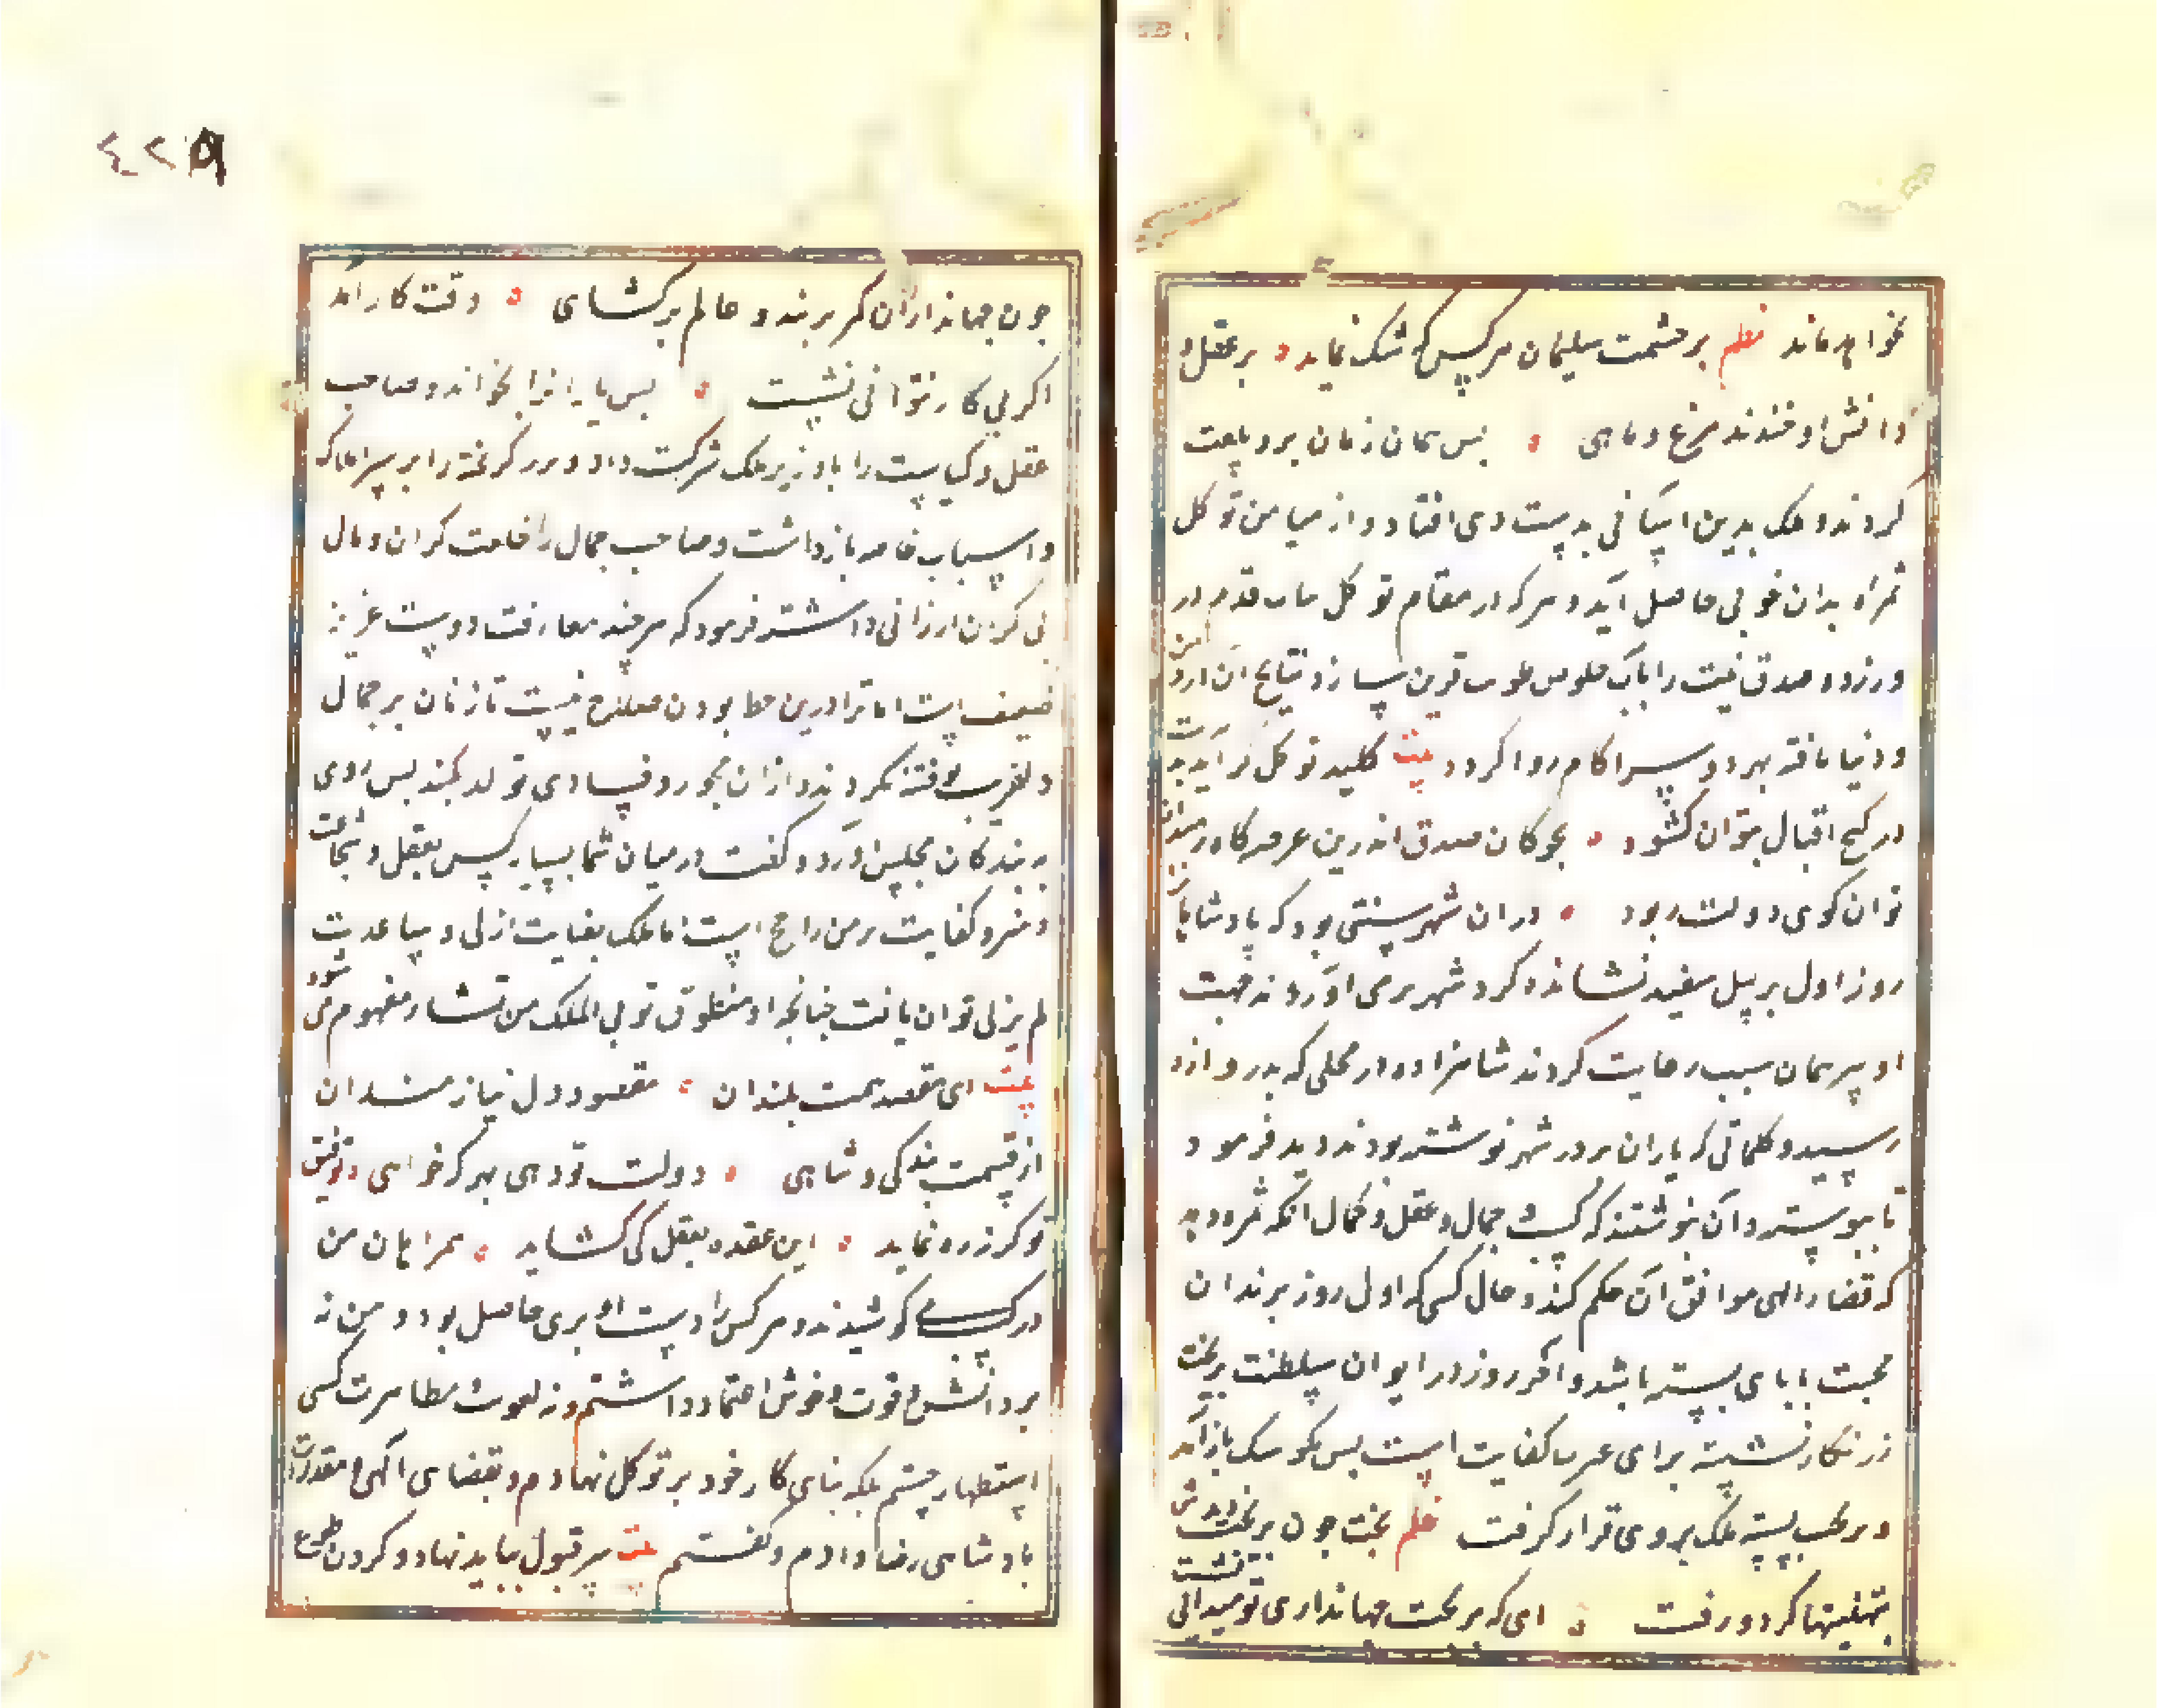 نخواهد ماند نظم بر حشمت سلیمان هرکس که شک نماید بر عقل و
دانش او خندند مرغ و ماهی پس همان زمان برو بیعت
کردند و ملک بدین آسانی بدست وی افتاد و از میامن توکل
ثمراه بدان خوبی حاصل آید و هرکه در مقام توکل ثابت قدم در
ورزد و صدق نیت را با خلوص طویت قرین سازد نتایج آن در دین
و دنیا یافته بهر دو سرا کام روا گردد بیت کلید توکل گر آید بدست
در گنج اقبال بتوان گشود بچوکان صدق اندرین عرصه کاه
توان کوی دولت ربود در آن شهر سنتی بود که پادشاه
روز اول بر پیل سفید نشانده کرد شهر برمی آوردند جهت
او نیز همان سبب رعایت کردند شاهزاده در محلی که بدروازه
رسید و کلماتی که یاران بر در شهر نوشته بودند دید فرمود
تا بپیوسته آن بنوشتند که کسب و جمال و عقل و کمال آنکه ثمره دهد
که قضاء الهی موافق آن حکم کند و حال کسی که اول روز بزندان
محبت با پای بسته باشد و آخر روز در ایوان سلطنت بر تخت
زرنگار نشیند برای عبرت کفایت است پس بکوشک باز آمد
و بر تخت نشسته ملک بر وی قرار گرفت نظم بخت چون بر تخت دیدش
تهنیتها کرد و رفت ای که بر تخت جهانداری تو میدانی نشست
٤٢٩
چون جهانداران کمر بربند و عالم برگشای وقت کار آمد
اگر بی کار نتوانی نشست پس یاران را بخواند و صاحب
عقل و کیاست را با وزیر ملک شرکت داد و برزگر بچه را بر سر املاک
و اسباب خاصه بازداشت و صاحب جمال را خلعت گران و مال
بی کران ارزانی داشته فرمود که هر چند مفارقت دوست عزیز
ضعیف است اما ترا درین خطا بودن صلاح نیست تا زنان بر جمال
دلفریب تو فتنه نگردند و از آن فجور و فسادی تولد نکند پس روی
به بندگان مجلس آورد و گفت در میان شما بسیار کس بعقل و شجاعت
و هنر و کفایت بر من راجح است اما ملک بعنایت ازلی و مساعدت
لم یزلی توان یافت چنانچه از منطوق تؤتی الملک من تشاء مفهوم می شود
بیت ای مقصد همت بلندان مقصود دل نیازمندان
از قسمت بندگی و شاهی دولت تو دهی بهر که خواهی توفیق
تو گر نه ره نماید این عقده بعقل کی گشاید همراهان من
در کسب کوشیدند و هرکس را دست آویزی حاصل بود و من نه
بر دانش و قوت خویش اعتماد داشتم و نه بمعونت و مظاهرت کسی
استظهار جستم بلکه بنای کار خود بر توکل نهادم و بقضای الهی و مقدرات
پادشاهی رضا دادم و گفتم بیت سر قبول بباید نهاد و گردن طوع